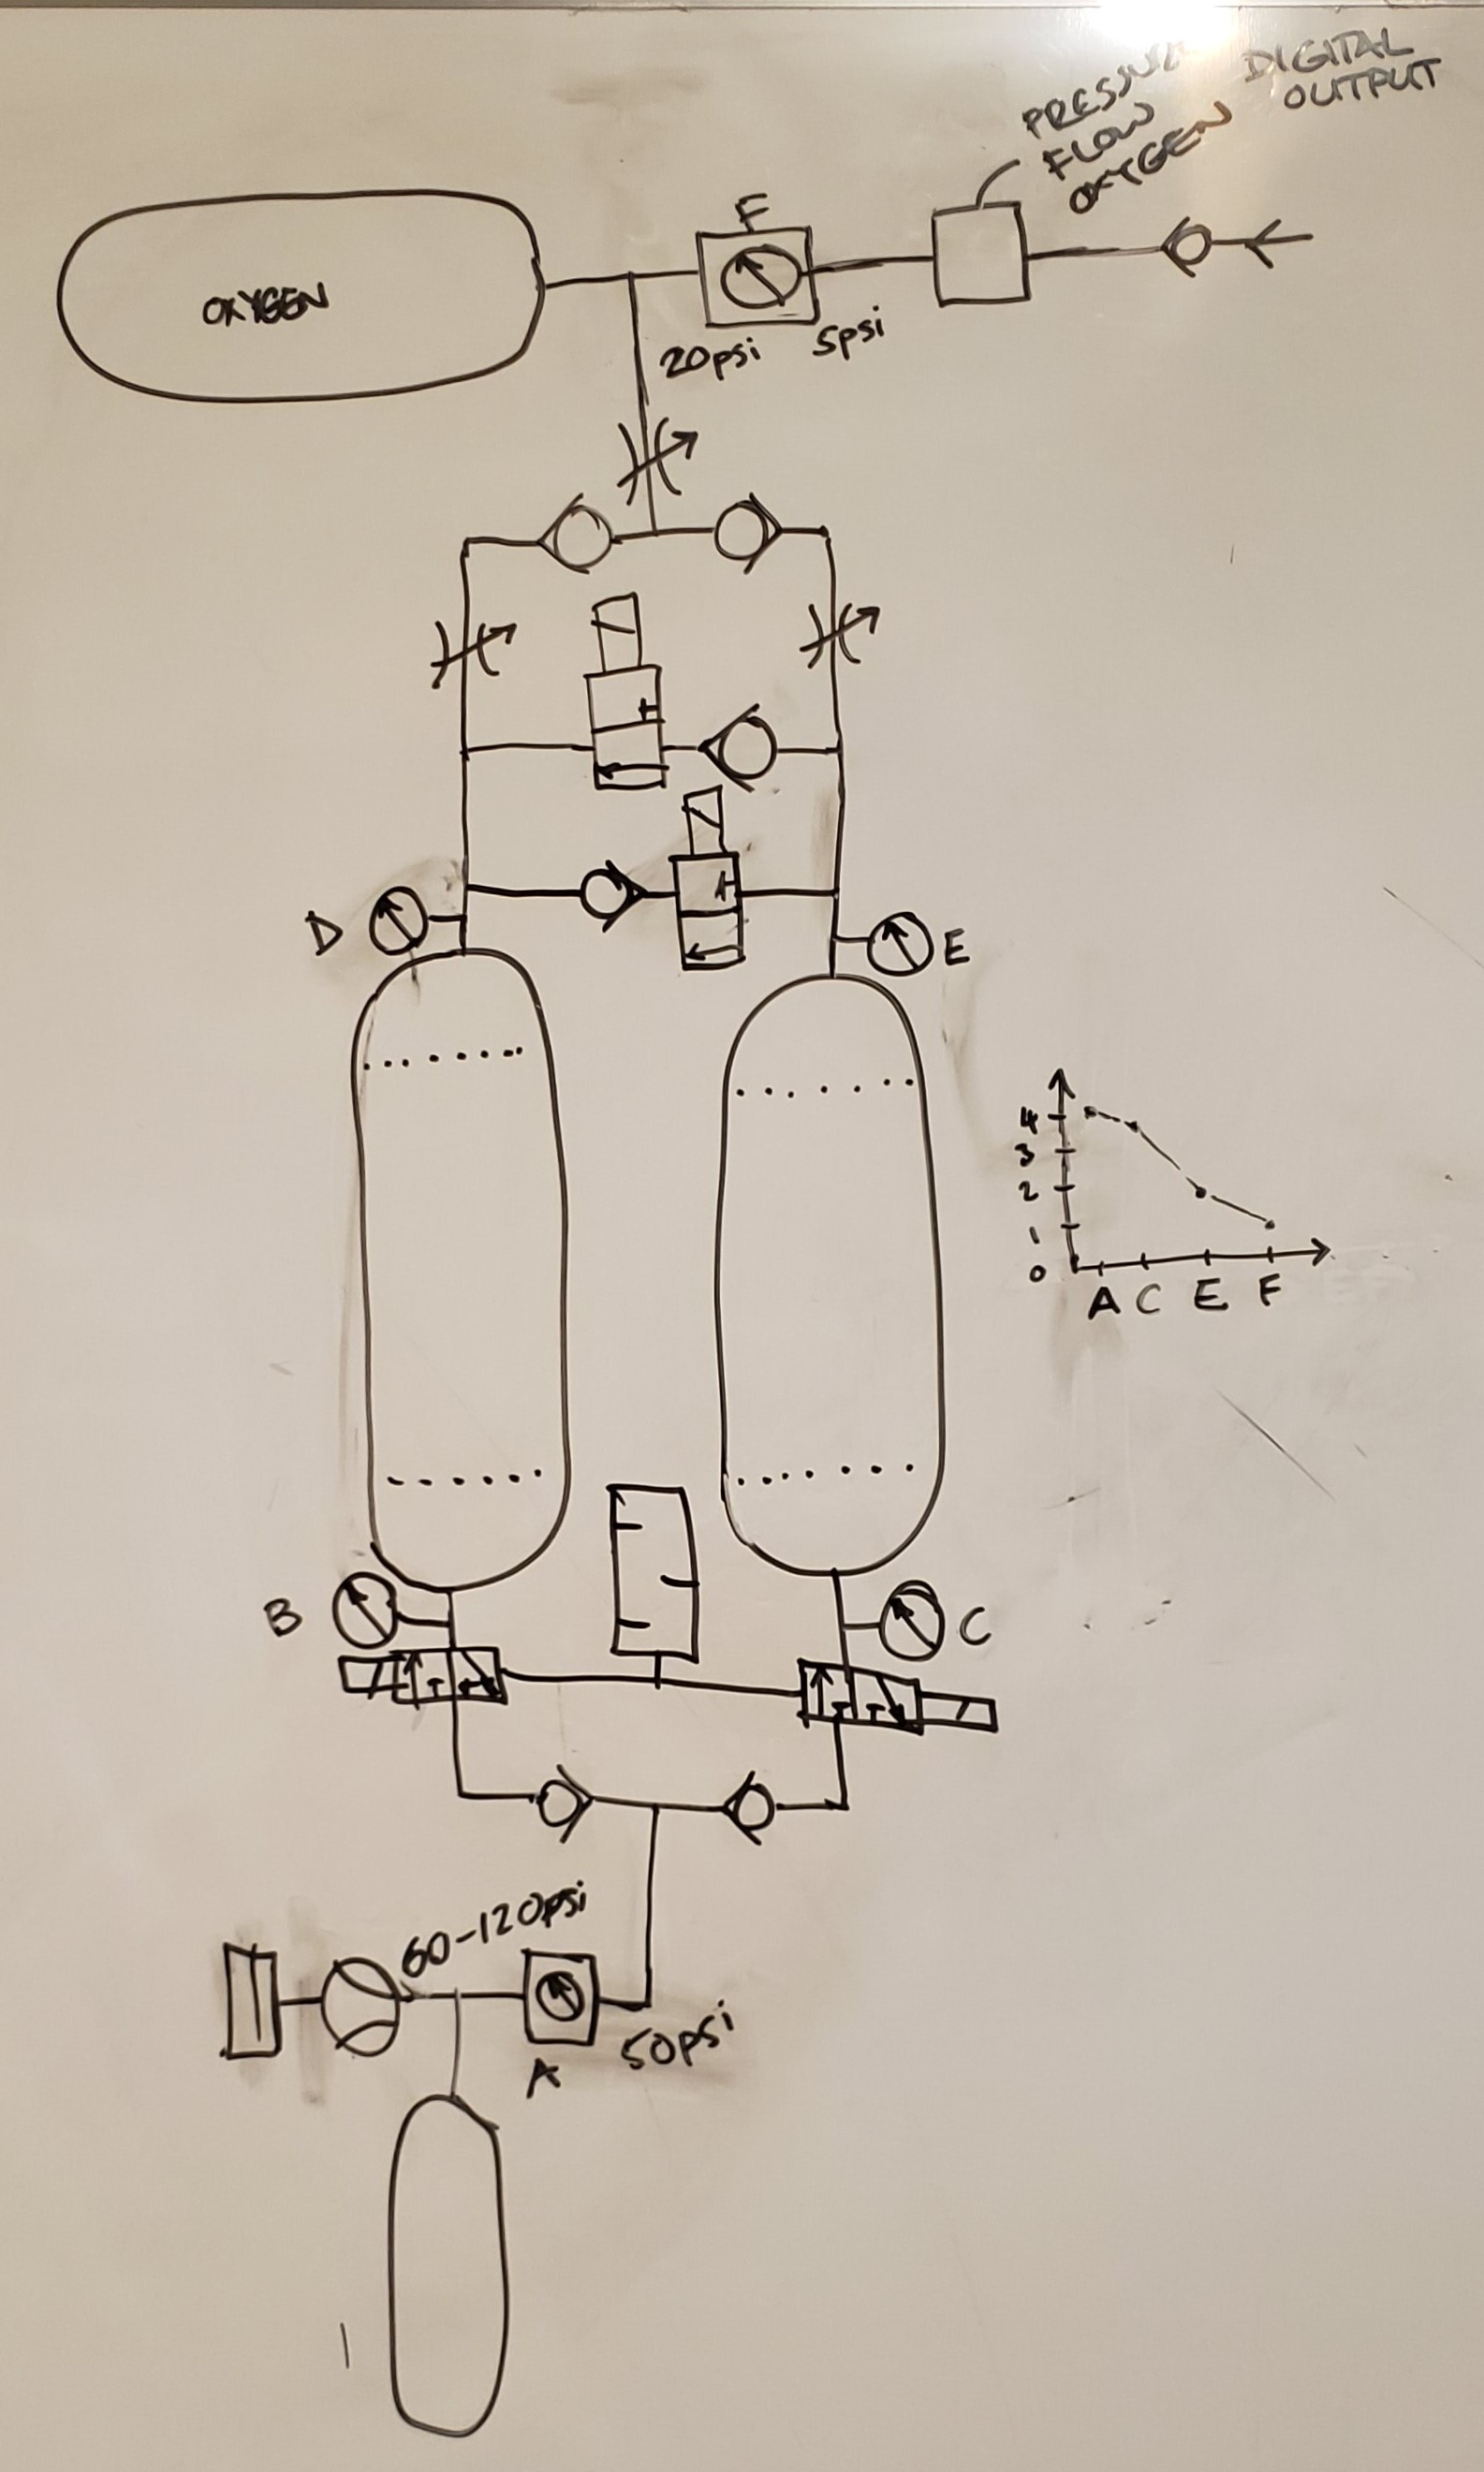 PRESSURE
FLOW
OXYGEN
DIGITAL
OUTPUT
F
OXYGEN
20psi
5psi
D
E
4
3
2
1
0
A C E F
B
C
60-120psi
50psi
A